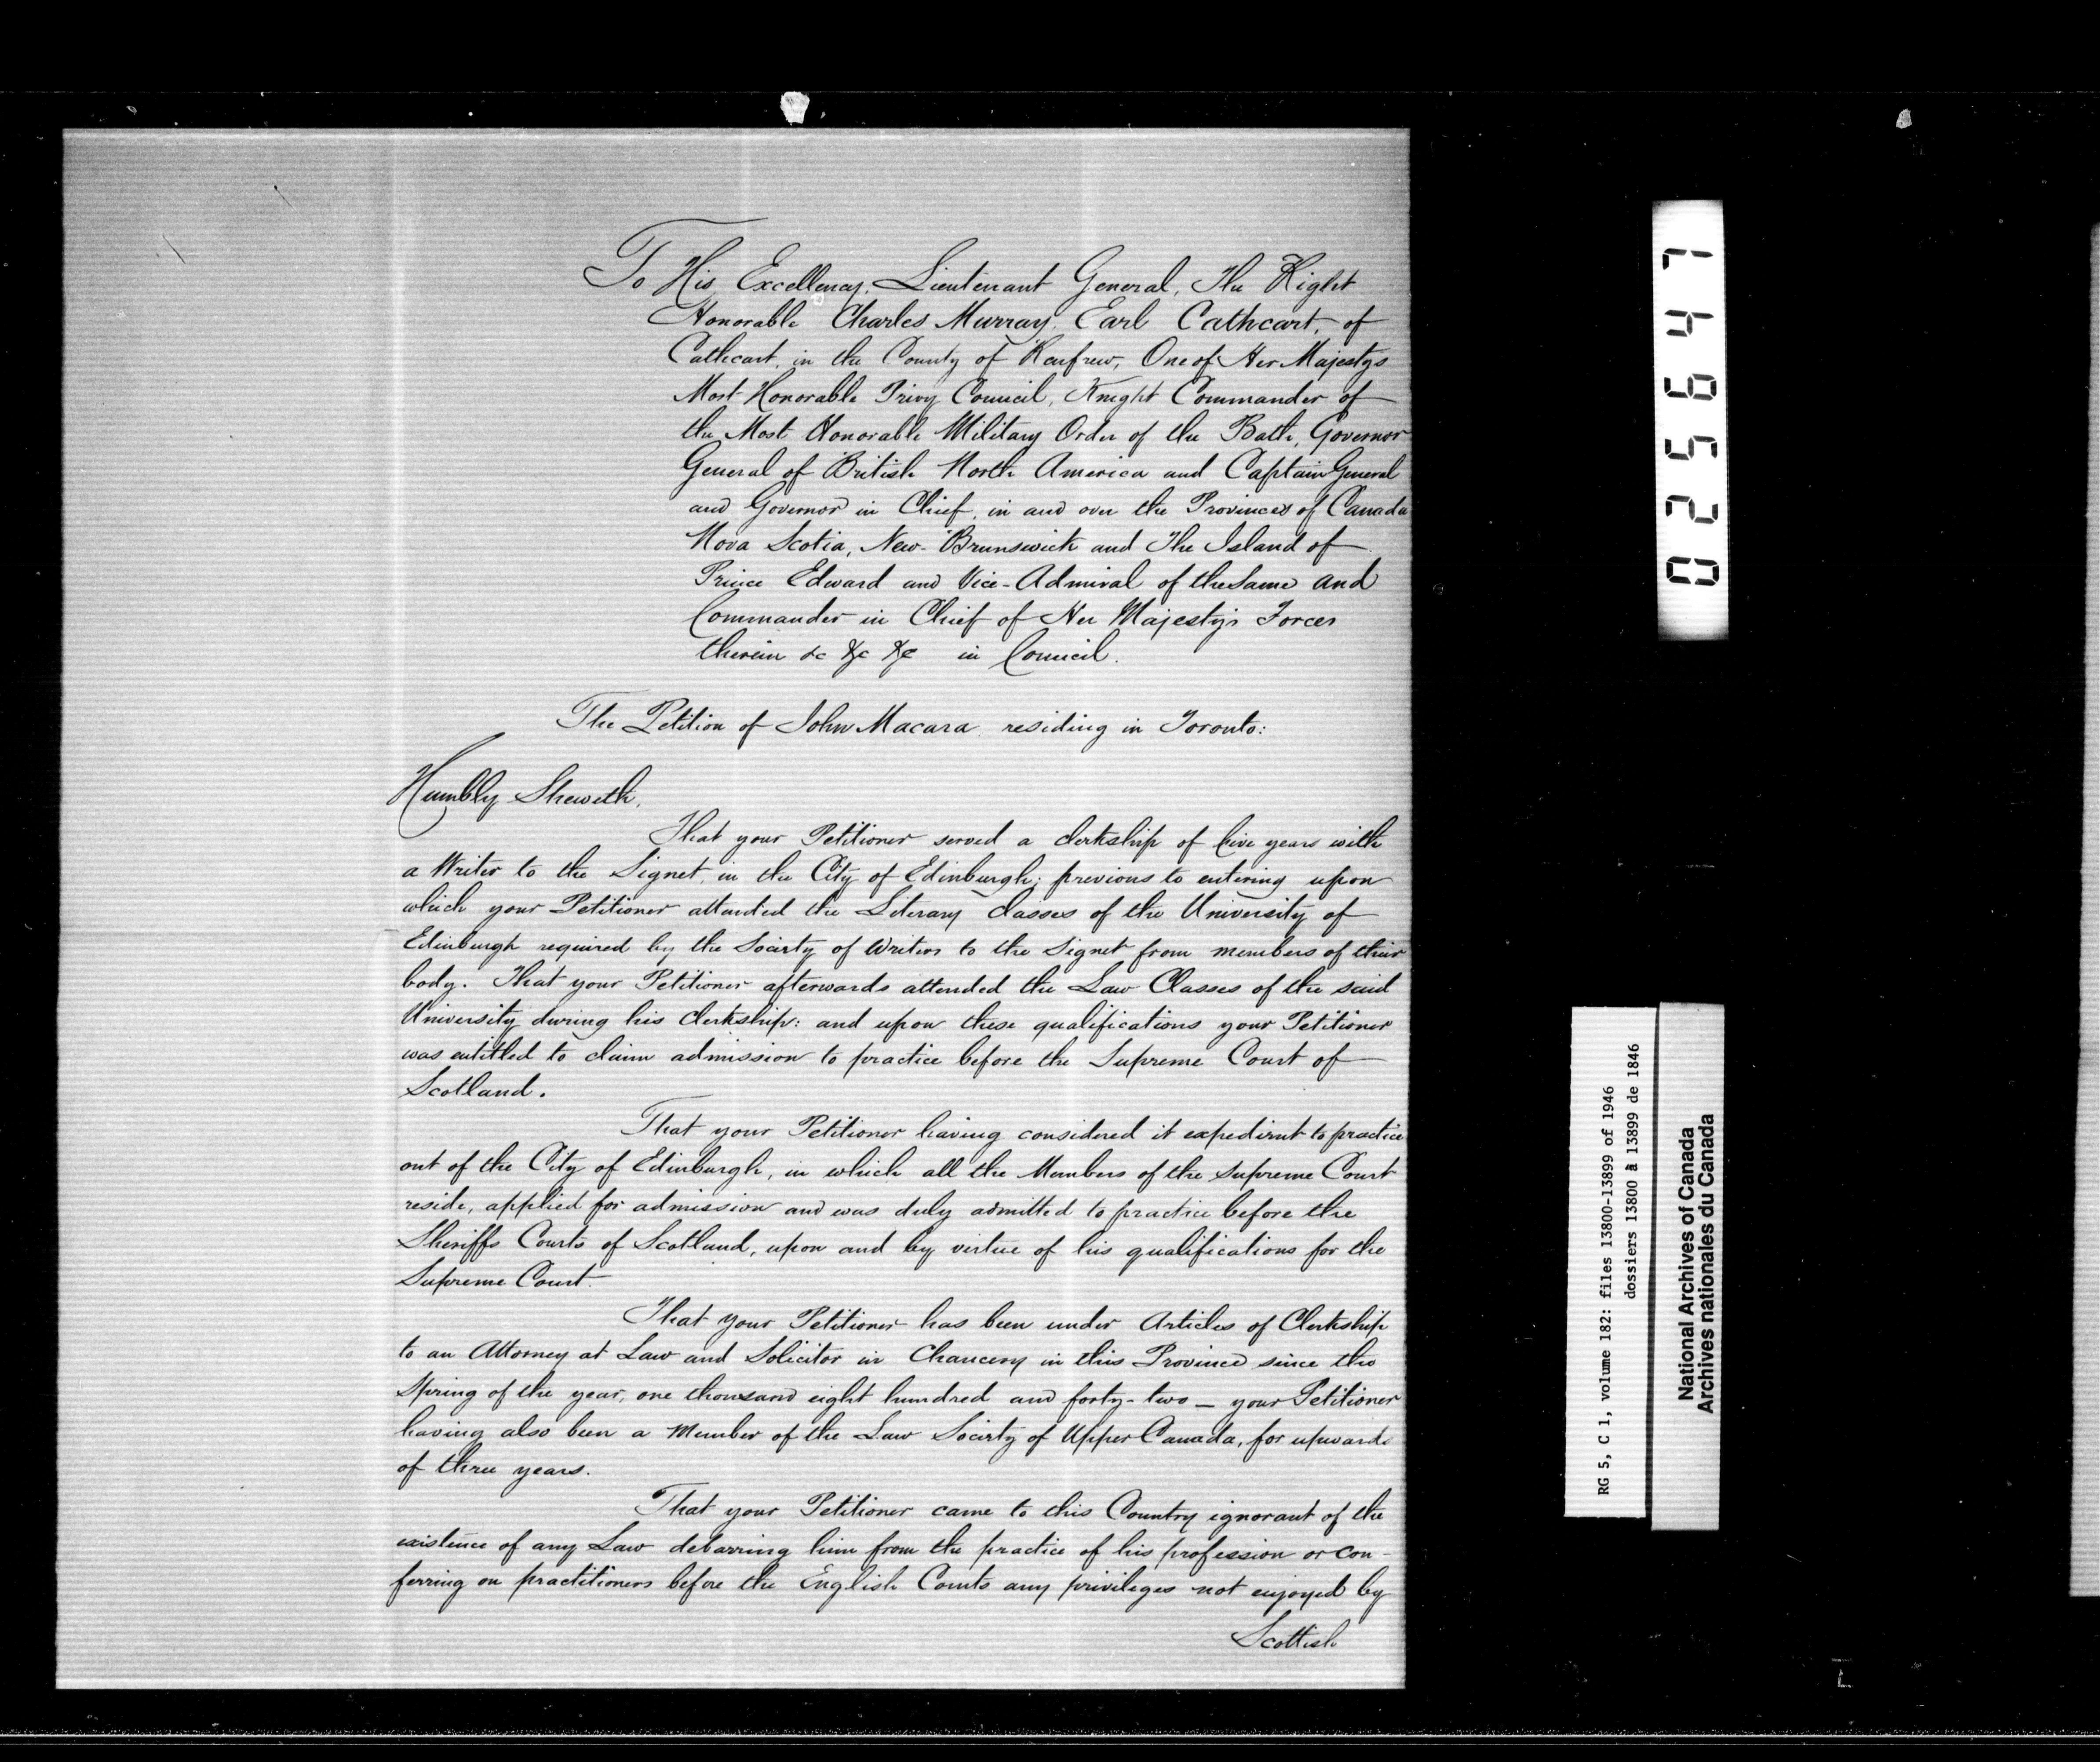 To His Excellency, Lieutenant General, The Right
Honorable Charles Murray, Earl Cathcart, of
Cathcart, in the County of Renfrew, One of Her Majestys
Most Honorable Privy Council, Knight Commander of
the Most Honorable Military Order of the Bath, Governor
General of British North America and Captain General
and Governor in Chief, in and over the Provinces of Canada
Nova Scotia, New-Brunswick and The Island of
Prince Edward and Vice-Admiral of the Same and
Commander in Chief of Her Majesty's Forces
therein &c &c &c in Council.
The Petition of John Macara, residing in Toronto:
Humbly Sheweth,
That your Petitioner served a clerkship of five years with
a Writer to the Signet, in the City of Edinburgh; previous to entering upon
which your Petitioner attended the Literary classes of the University of
Edinburgh required by the Society of Writers to the Signet from members of their
body. That your Petitioner afterwards attended the Law Classes of the said
University during his clerkship: and upon these qualifications your Petitioner
was entitled to claim admission to practice before the Supreme Court of
Scotland.
That your Petitioner having considered it expedient to practice
out of the City of Edinburgh, in which all the Members of the Supreme Court
reside, applied for admission and was duly admitted to practice before the
Sheriffs Courts of Scotland, upon and by virtue of his qualifications for the
Supreme Court.
That your Petitioner has been under Articles of Clerkship
to an Attorney at Law and Solicitor in Chancery in this Province since the
Spring of the year, one thousand eight hundred and forty-two — your Petitioner
having also been a Member of the Law Society of Upper Canada, for upwards
of three years.
That your Petitioner came to this Country ignorant of the
existence of any Law debarring him from the practice of his profession or con-
ferring on practitioners before the English Courts any privileges not enjoyed by
Scottish
025647
RG 5, C 1, volume 182: files 13800-13899 of 1946
dossiers 13800 à 13899 de 1846
National Archives of Canada
Archives nationales du Canada